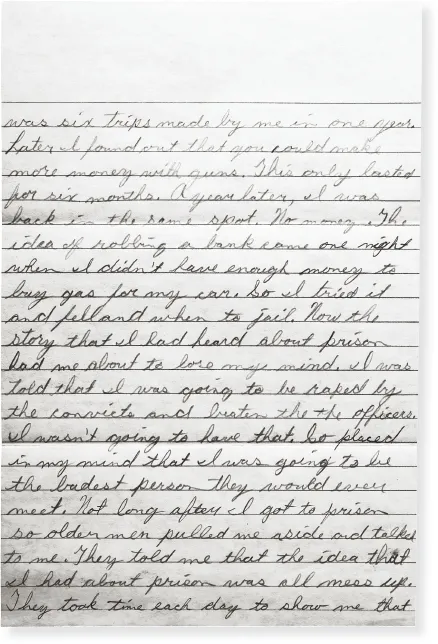 was six trips made by me in one year.
Later I found out that you could make
more money with guns. This only lasted
for six months. A year later, I was
back in the same spot. No money. The
idea of robbing a bank came one night
when I didn't have enough money to
buy gas for my car. So I tried it
and fell and when to jail. Now the
story that I had heard about prison
had me about to lose my mind. I was
told that I was going to be raped by
the convicts and beaten the the officers.
I wasn't going to have that. So placed
in my mind that I was going to be
the badest person they would ever
meet. Not long after I got to prison
so older men pulled me aside and talked
to me. They told me that the idea that
I had about prison was all mess up.
They took time each day to show me that